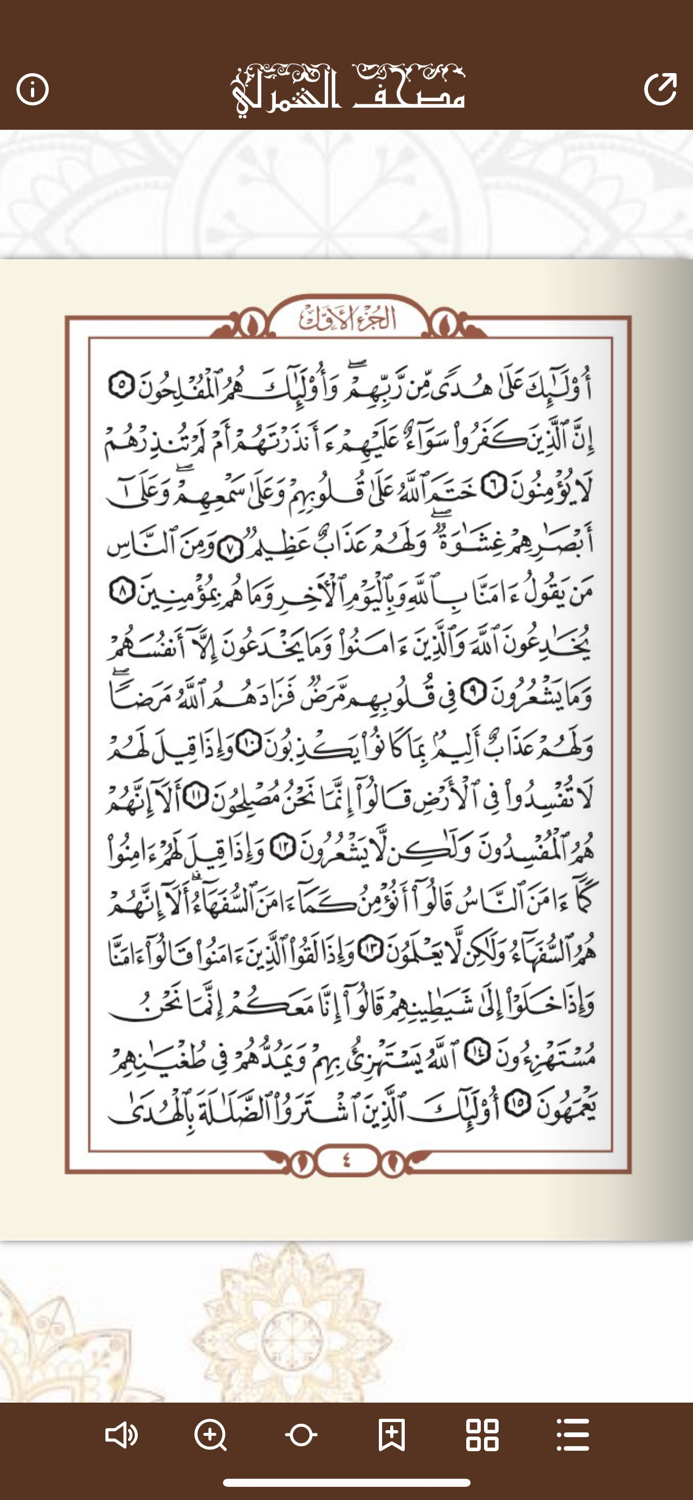 مصحف الشمرلي
الجزء الأول
أُوْلَٰٓئِكَ عَلَىٰ هُدًى مِّن رَّبِّهِمْۖ وَأُوْلَٰٓئِكَ هُمُ ٱلْمُفْلِحُونَ ٥
إِنَّ ٱلَّذِينَ كَفَرُواْ سَوَآءٌ عَلَيْهِمْ ءَأَنذَرْتَهُمْ أَمْ لَمْ تُنذِرْهُمْ
لَا يُؤْمِنُونَ ٦ خَتَمَ ٱللَّهُ عَلَىٰ قُلُوبِهِمْ وَعَلَىٰ سَمْعِهِمْۖ وَعَلَىٰٓ
أَبْصَٰرِهِمْ غِشَٰوَةٌۖ وَلَهُمْ عَذَابٌ عَظِيمٌ ٧ وَمِنَ ٱلنَّاسِ
مَن يَقُولُ ءَامَنَّا بِٱللَّهِ وَبِٱلْيَوْمِ ٱلْأَخِرِ وَمَا هُم بِمُؤْمِنِينَ ٨
يُخَٰدِعُونَ ٱللَّهَ وَٱلَّذِينَ ءَامَنُواْ وَمَا يَخْدَعُونَ إِلَّآ أَنفُسَهُمْ
وَمَا يَشْعُرُونَ ٩ فِى قُلُوبِهِم مَّرَضٌ فَزَادَهُمُ ٱللَّهُ مَرَضًاۖ
وَلَهُمْ عَذَابٌ أَلِيمٌ بِمَا كَانُواْ يَكْذِبُونَ ١٠ وَإِذَا قِيلَ لَهُمْ
لَا تُفْسِدُواْ فِى ٱلْأَرْضِ قَالُوٓاْ إِنَّمَا نَحْنُ مُصْلِحُونَ ١١ أَلَآ إِنَّهُمْ
هُمُ ٱلْمُفْسِدُونَ وَلَٰكِن لَّا يَشْعُرُونَ ١٢ وَإِذَا قِيلَ لَهُمْ ءَامِنُواْ
كَمَآ ءَامَنَ ٱلنَّاسُ قَالُوٓاْ أَنُؤْمِنُ كَمَآ ءَامَنَ ٱلسُّفَهَآءُۗ أَلَآ إِنَّهُمْ
هُمُ ٱلسُّفَهَآءُ وَلَٰكِن لَّا يَعْلَمُونَ ١٣ وَإِذَا لَقُواْ ٱلَّذِينَ ءَامَنُواْ قَالُوٓاْ ءَامَنَّا
وَإِذَا خَلَوْاْ إِلَىٰ شَيَٰطِينِهِمْ قَالُوٓاْ إِنَّا مَعَكُمْ إِنَّمَا نَحْنُ
مُسْتَهْزِءُونَ ١٤ ٱللَّهُ يَسْتَهْزِئُ بِهِمْ وَيَمُدُّهُمْ فِى طُغْيَٰنِهِمْ
يَعْمَهُونَ ١٥ أُوْلَٰٓئِكَ ٱلَّذِينَ ٱشْتَرَوُاْ ٱلضَّلَٰلَةَ بِٱلْهُدَىٰ
٤